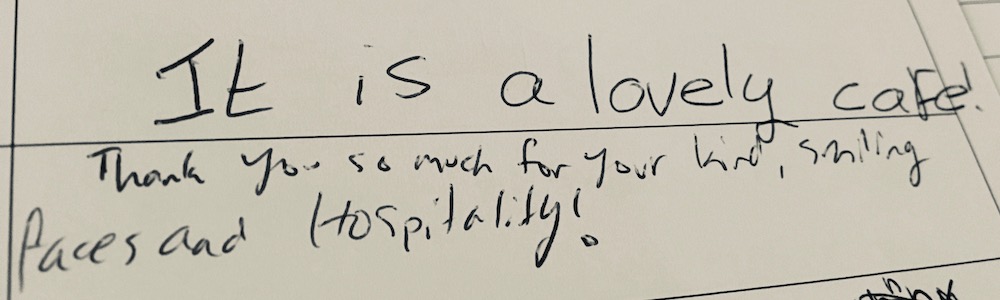 It is a lovely cafe!
Thank you so much for your kind, smiling
faces and Hospitality!